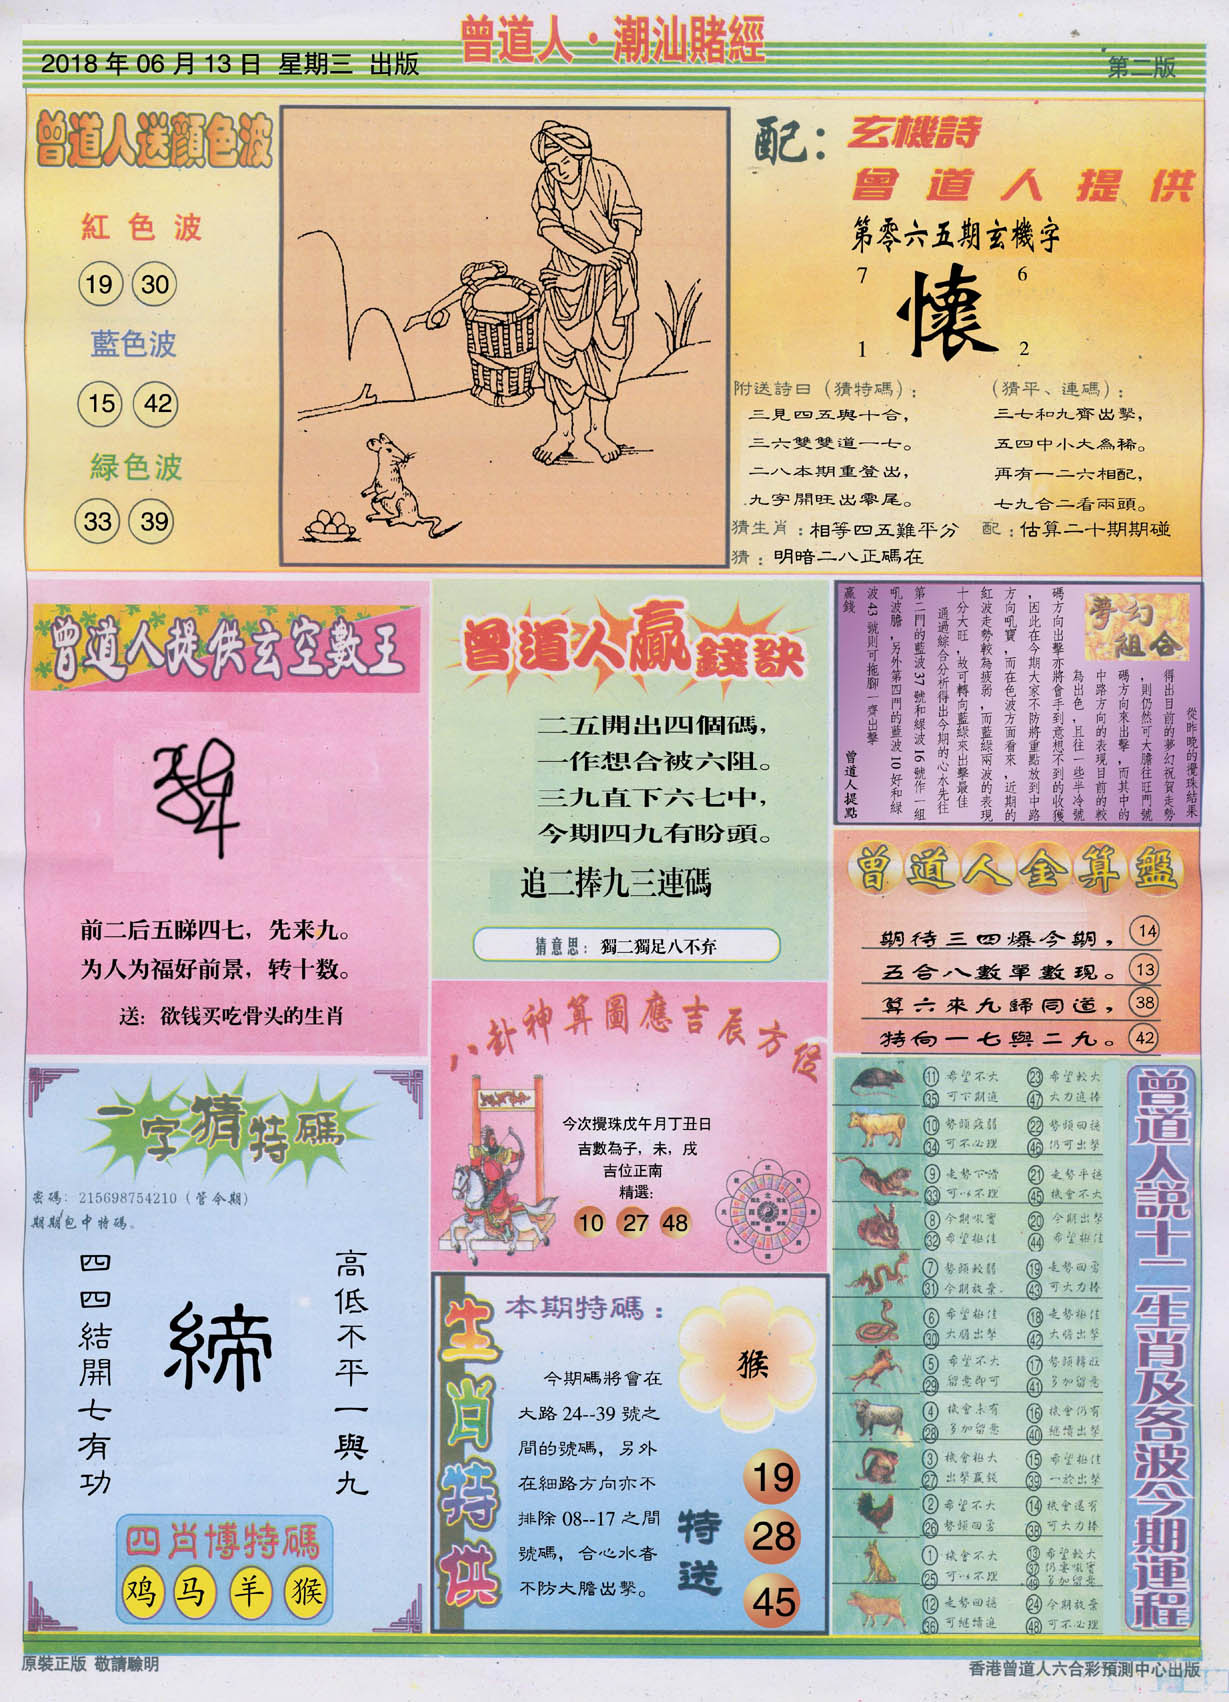 曾道人·潮汕賭經
2018年06月13日 星期三 出版
第二版
曾道人送顔色波
紅色波
19 30
藍色波
15 42
緑色波
33 39
配：玄機詩
曾道人提供
第零六五期玄機字
7 6
懷
1 2
附送詩曰（猜特碼）：
三見四五與十合，
三六雙雙道一七。
二八本期重登出，
九字開旺出零尾。
（猜平、連碼）：
三七和九齊出擊，
五四中小大為稀。
再有一二六相配，
七九合二看兩頭。
猜生肖：相等四五難平分
配：估算二十期期碰
猜：明暗二八正碼在
曾道人提供玄空數王
前二后五睇四七，先来九。
为人为福好前景，转十数。
送：欲钱买吃骨头的生肖
曾道人贏錢訣
二五開出四個碼，
一作想合被六阻。
三九直下六七中，
今期四九有盼頭。
追二捧九三連碼
猜意思：獨二獨足八不弃
夢幻組合
從昨晚的攪珠結果
得出目前的夢幻祝賀走勢
，則仍然可大膽往旺門號
碼方向來出擊，而其中的
中路方向的表現目前的較
為出色，且往一些半冷號
碼方向出擊亦將會手到意想不到的收獲
，因此在今期大家不防將重點放到中路
方向吼寶，而在色波方面看來，近期的
紅波走勢較為疲弱，而藍綠兩波的表現
十分大旺，故可轉向藍綠來出擊最佳
通過綜合分析得出今期的心水先往
第二門的藍波37號和綠波16號作一組
吼波膽，另外第四門的藍波10好和綠
波43號則可拖腳一齊出擊
贏錢
曾道人提點
曾道人金算盤
期待三四爆今期，14
五合八數單數現。13
算六來九締同道，38
特向一七與二九。42
八卦神算圖應吉辰方位
今次攪珠戊午月丁丑日
吉數為子，未，戌
吉位正南
精選：
10 27 48
一字猜特碼
密碼：215698754210（管今期）
期期包中特碼。
高低不平一與九
締
四四結開七有功
四肖博特碼
鸡 马 羊 猴
生肖特供
本期特碼：
猴
今期碼將會在
大路24--39號之
間的號碼，另外
在細路方向亦不
排除08--17之間
號碼，合心水者
不防大膽出擊。
特送
19
28
45
曾道人説十二生肖及各波今期運程
11 希望不大 23 希望較大
35 可下期追 47 大力追捧
10 勢頭疲弱 22 勢頭回穩
34 可不必理 46 仍可出擊
9 走勢下滑 21 走勢平穩
33 可以不理 45 機會不大
8 今期吼寶 20 今期出擊
32 希望極佳 44 希望極佳
7 勢頭較弱 19 走勢回勇
31 今期放棄 43 可大力捧
6 希望極佳 18 走勢極佳
30 大膽出擊 42 大膽出擊
5 希望不大 17 勢頭轉旺
29 留意即可 41 多加留意
4 機會未有 16 機會仍有
28 多加留意 40 繼續出擊
3 機會極大 15 希望極佳
27 出擊贏錢 39 一於出擊
2 希望不大 14 機會還有
26 勢頭回勇 38 可大力捧
1 機會不大 13 希望較大
25 可以不理 37 仍要吼寶
49 多加留意
12 走勢回穩 24 今期放棄
36 可繼續追 48 可不必理
原裝正版 敬請驗明
香港曾道人六合彩預測中心出版